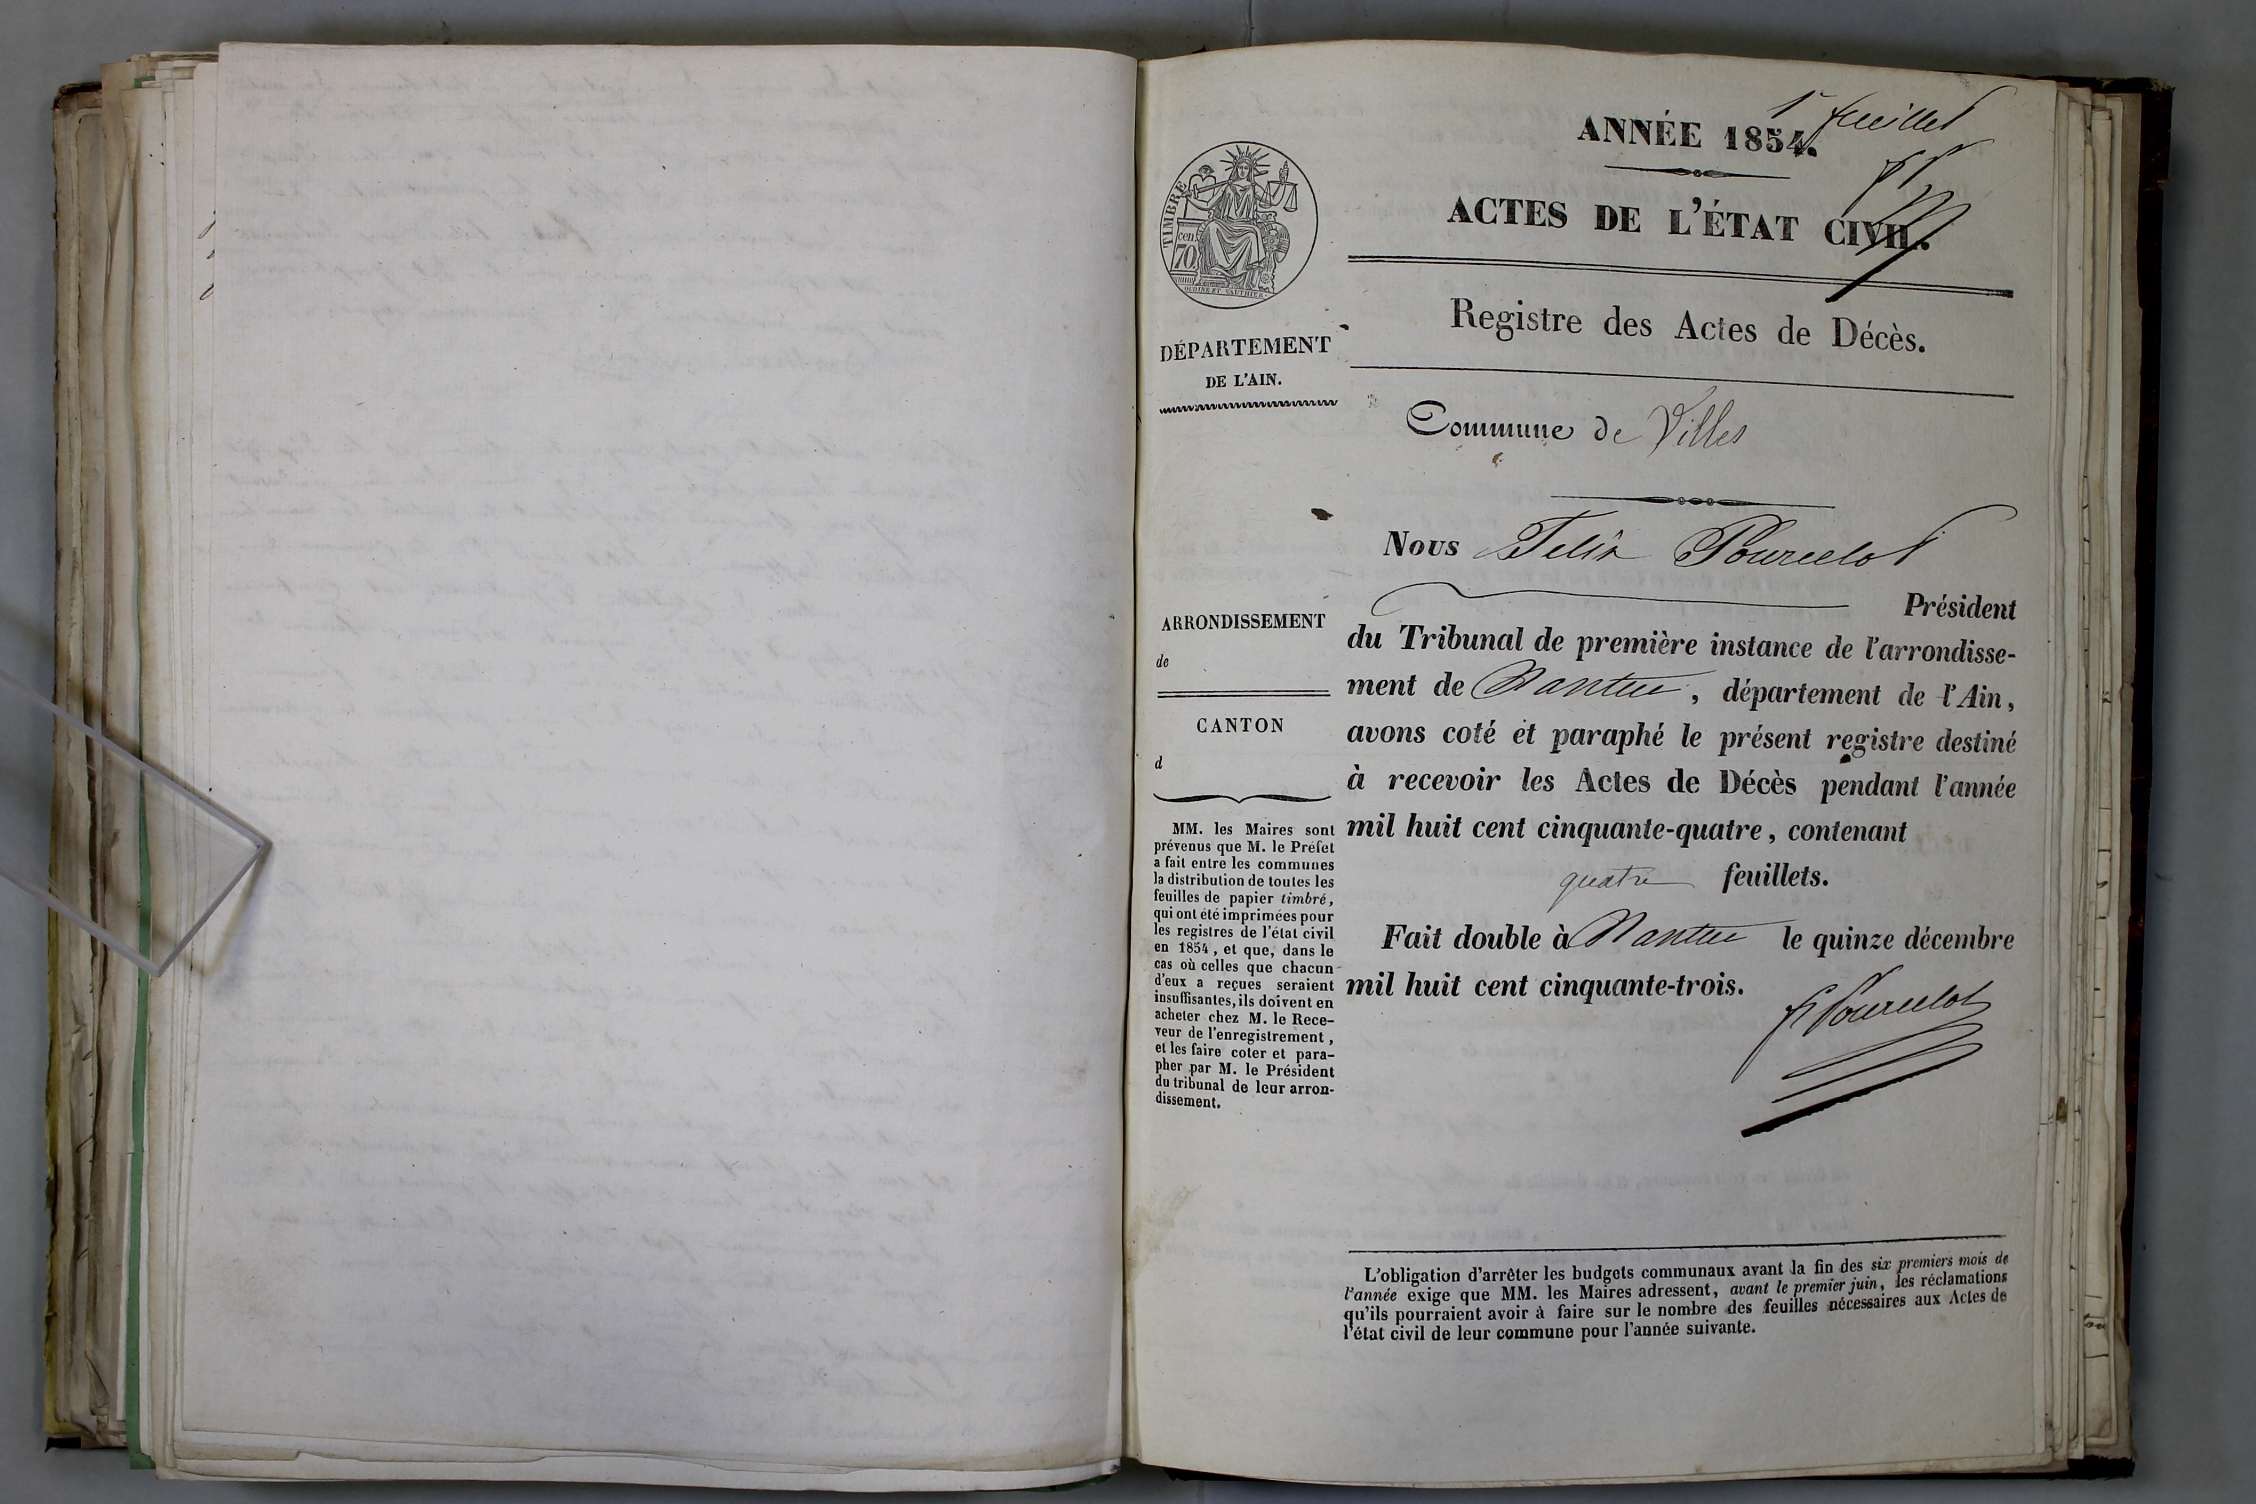 1er feuillet
ANNÉE 1854.
ACTES DE L'ÉTAT CIVIL.
Registre des Actes de Décès.
Commune de Villes
TIMBRE
70 cen
OUDINE ET GAUTHIER
DÉPARTEMENT
DE L'AIN.
ARRONDISSEMENT
de
CANTON
d
MM. les Maires sont
prévenus que M. le Préfet
a fait entre les communes
la distribution de toutes les
feuilles de papier timbré,
qui ont été imprimées pour
les registres de l'état civil
en 1854, et que, dans le
cas où celles que chacun
d'eux a reçues seraient
insuffisantes, ils doivent en
acheter chez M. le Rece-
veur de l'enregistrement,
et les faire coter et para-
pher par M. le Président
du tribunal de leur arron-
dissement.
Nous Felix Pourcelot
Président
du Tribunal de première instance de l'arrondisse-
ment de Nantua, département de l'Ain,
avons coté et paraphé le présent registre destiné
à recevoir les Actes de Décès pendant l'année
mil huit cent cinquante-quatre, contenant
quatre feuillets.
Fait double à Nantua le quinze décembre
mil huit cent cinquante-trois.
F Pourcelot
L'obligation d'arrêter les budgets communaux avant la fin des six premiers mois de
l'année exige que MM. les Maires adressent, avant le premier juin, les réclamations
qu'ils pourraient avoir à faire sur le nombre des feuilles nécessaires aux Actes de
l'état civil de leur commune pour l'année suivante.